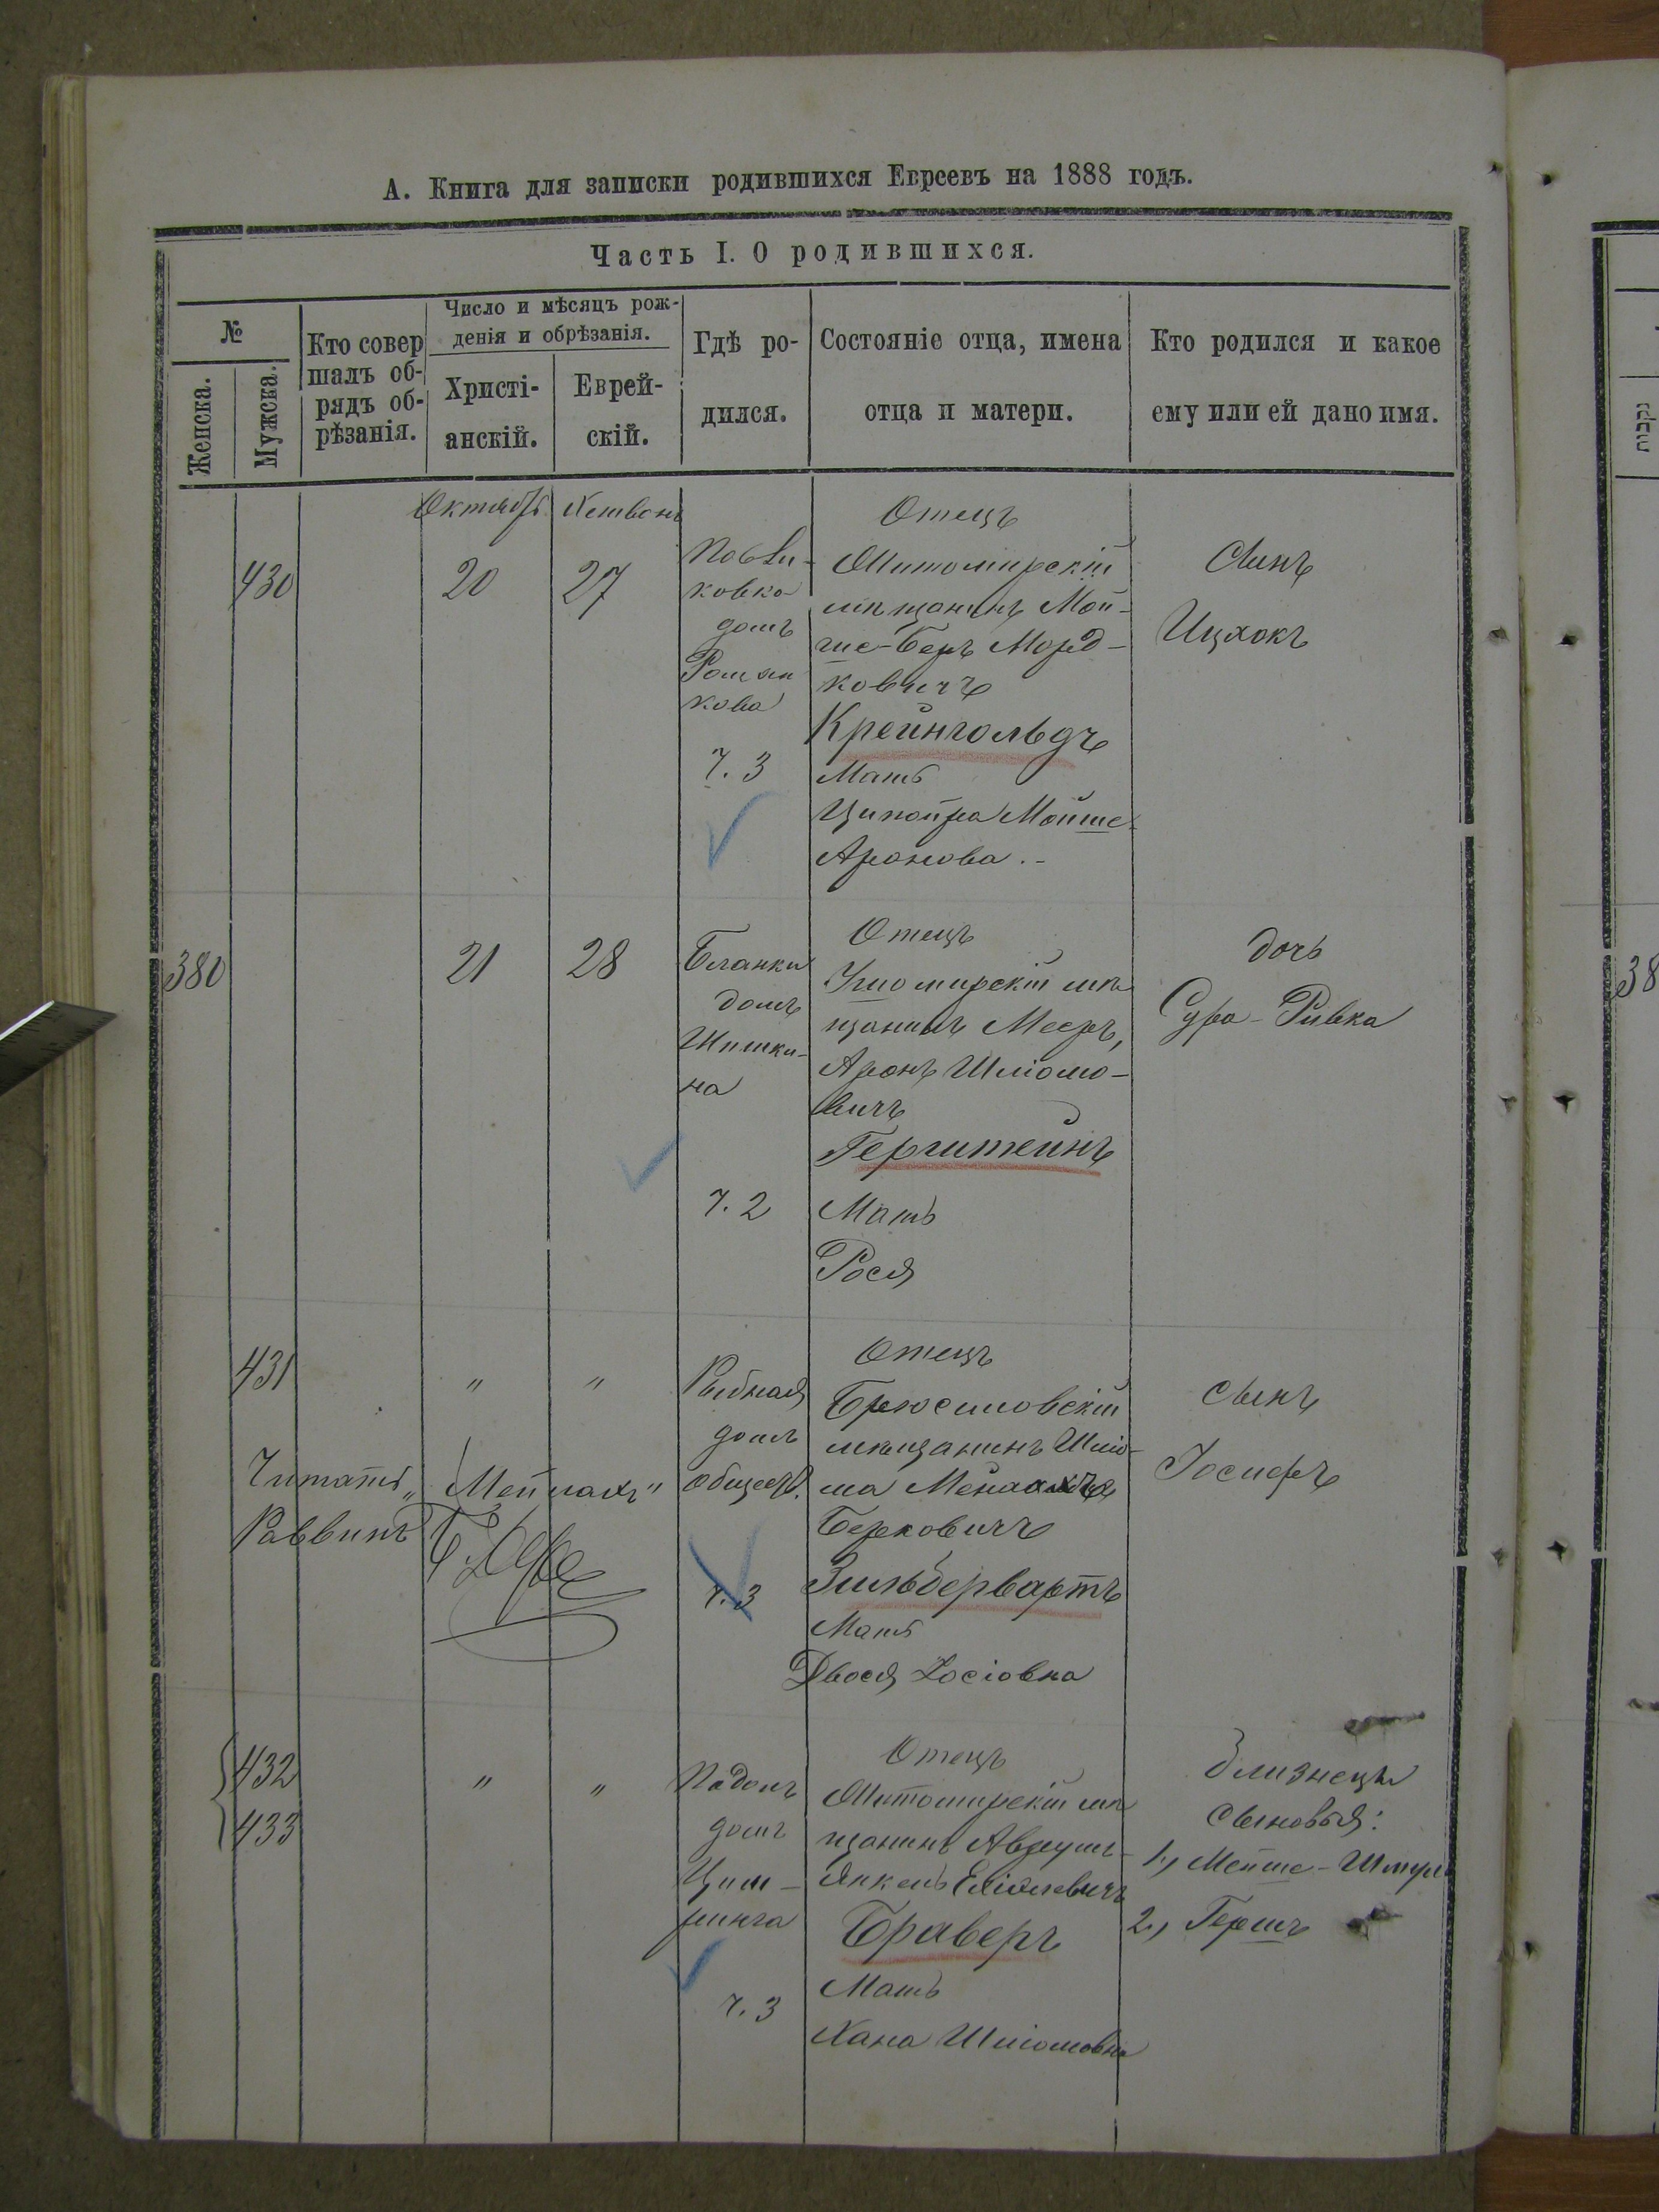 А. Книга для записки родившихся Евреевъ на 1888 годъ.
Часть I. О родившихся.
№
Женска.
Мужска.
Кто совер
шалъ об-
рядъ об-
рѣзанія.
Число и мѣсяцъ рож-
денія и обрѣзанія.
Христі-
анскій.
Еврей-
скій.
Гдѣ ро-
дился.
Состояніе отца, имена
отца и матери.
Кто родился и какое
ему или ей дано имя.
Октябрь
Хешвонъ
430
20
27
ковка
домъ
кова
ч. 3
Отецъ
Житомірскій
мѣщанинъ Мой-
ше-Беръ Морд-
ковичъ
Крейнгольдъ
Мать
Ципойра Мойше
Аронова.-
Сынъ
Ицхокъ
380
21
28
Бланки
домъ
Шишки-
на
ч. 2
Отецъ
мѣ
щанинъ Мееръ,
Аронъ Шліомо-
вичъ
Герштейнъ
Мать
Рося
дочь
Сура-Ривка
431
"
"
Рыбная
домъ
обществ.
ч. 3
Отецъ
Брюсиловскій
мѣщанинъ Шліо-
ма
Берковичъ
Зильбервартъ
Мать
Двося Іосіовна
сынъ
Іосифъ
Читать "Мейлахъ"
Раввинъ
432
433
"
"
Подолъ
домъ
Цим-
ринга
ч. 3
Отецъ
Житомирскій мѣ
щанинъ Аврумъ-
Янкель
Браверъ
Мать
Хана Шліомовна
близнецы
сыновья:
1., Мейше-Шмуль
2., Гершъ
38